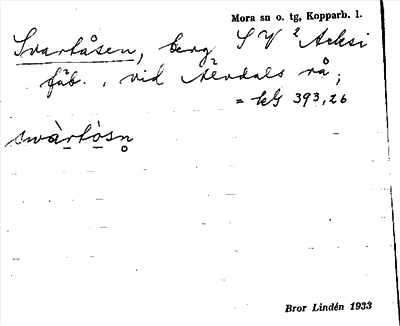 Mora sn o. tg, Kopparb. l.
Svartåsen, berg S V Acksi
fäb., vid Älvdals rå;
= kG 393,26
swàrtòsn̥
Bror Lindén 1933